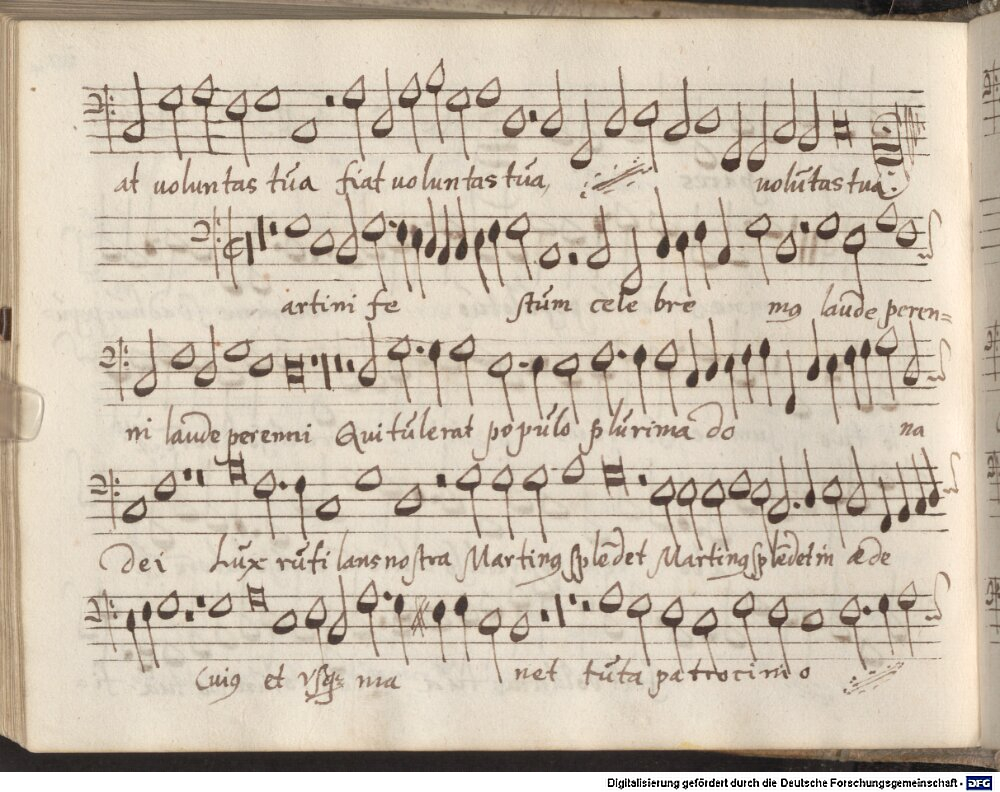 at voluntas tũa fiat voluntas tũa, volũtas tua
artini fe stũm cele bre mꝰ laũde peren=
ni laũde perenni Qui tũlerat popũlo plũrima do na
Dei Lũx rũtilans nostra Martinꝰ splẽdet Martinꝰ splẽdet in æde
Cuiꝰ et vsqꝫ ma net tũta patrocinio
Digitalisierung gefördert durch die Deutsche Forschungsgemeinschaft - DFG